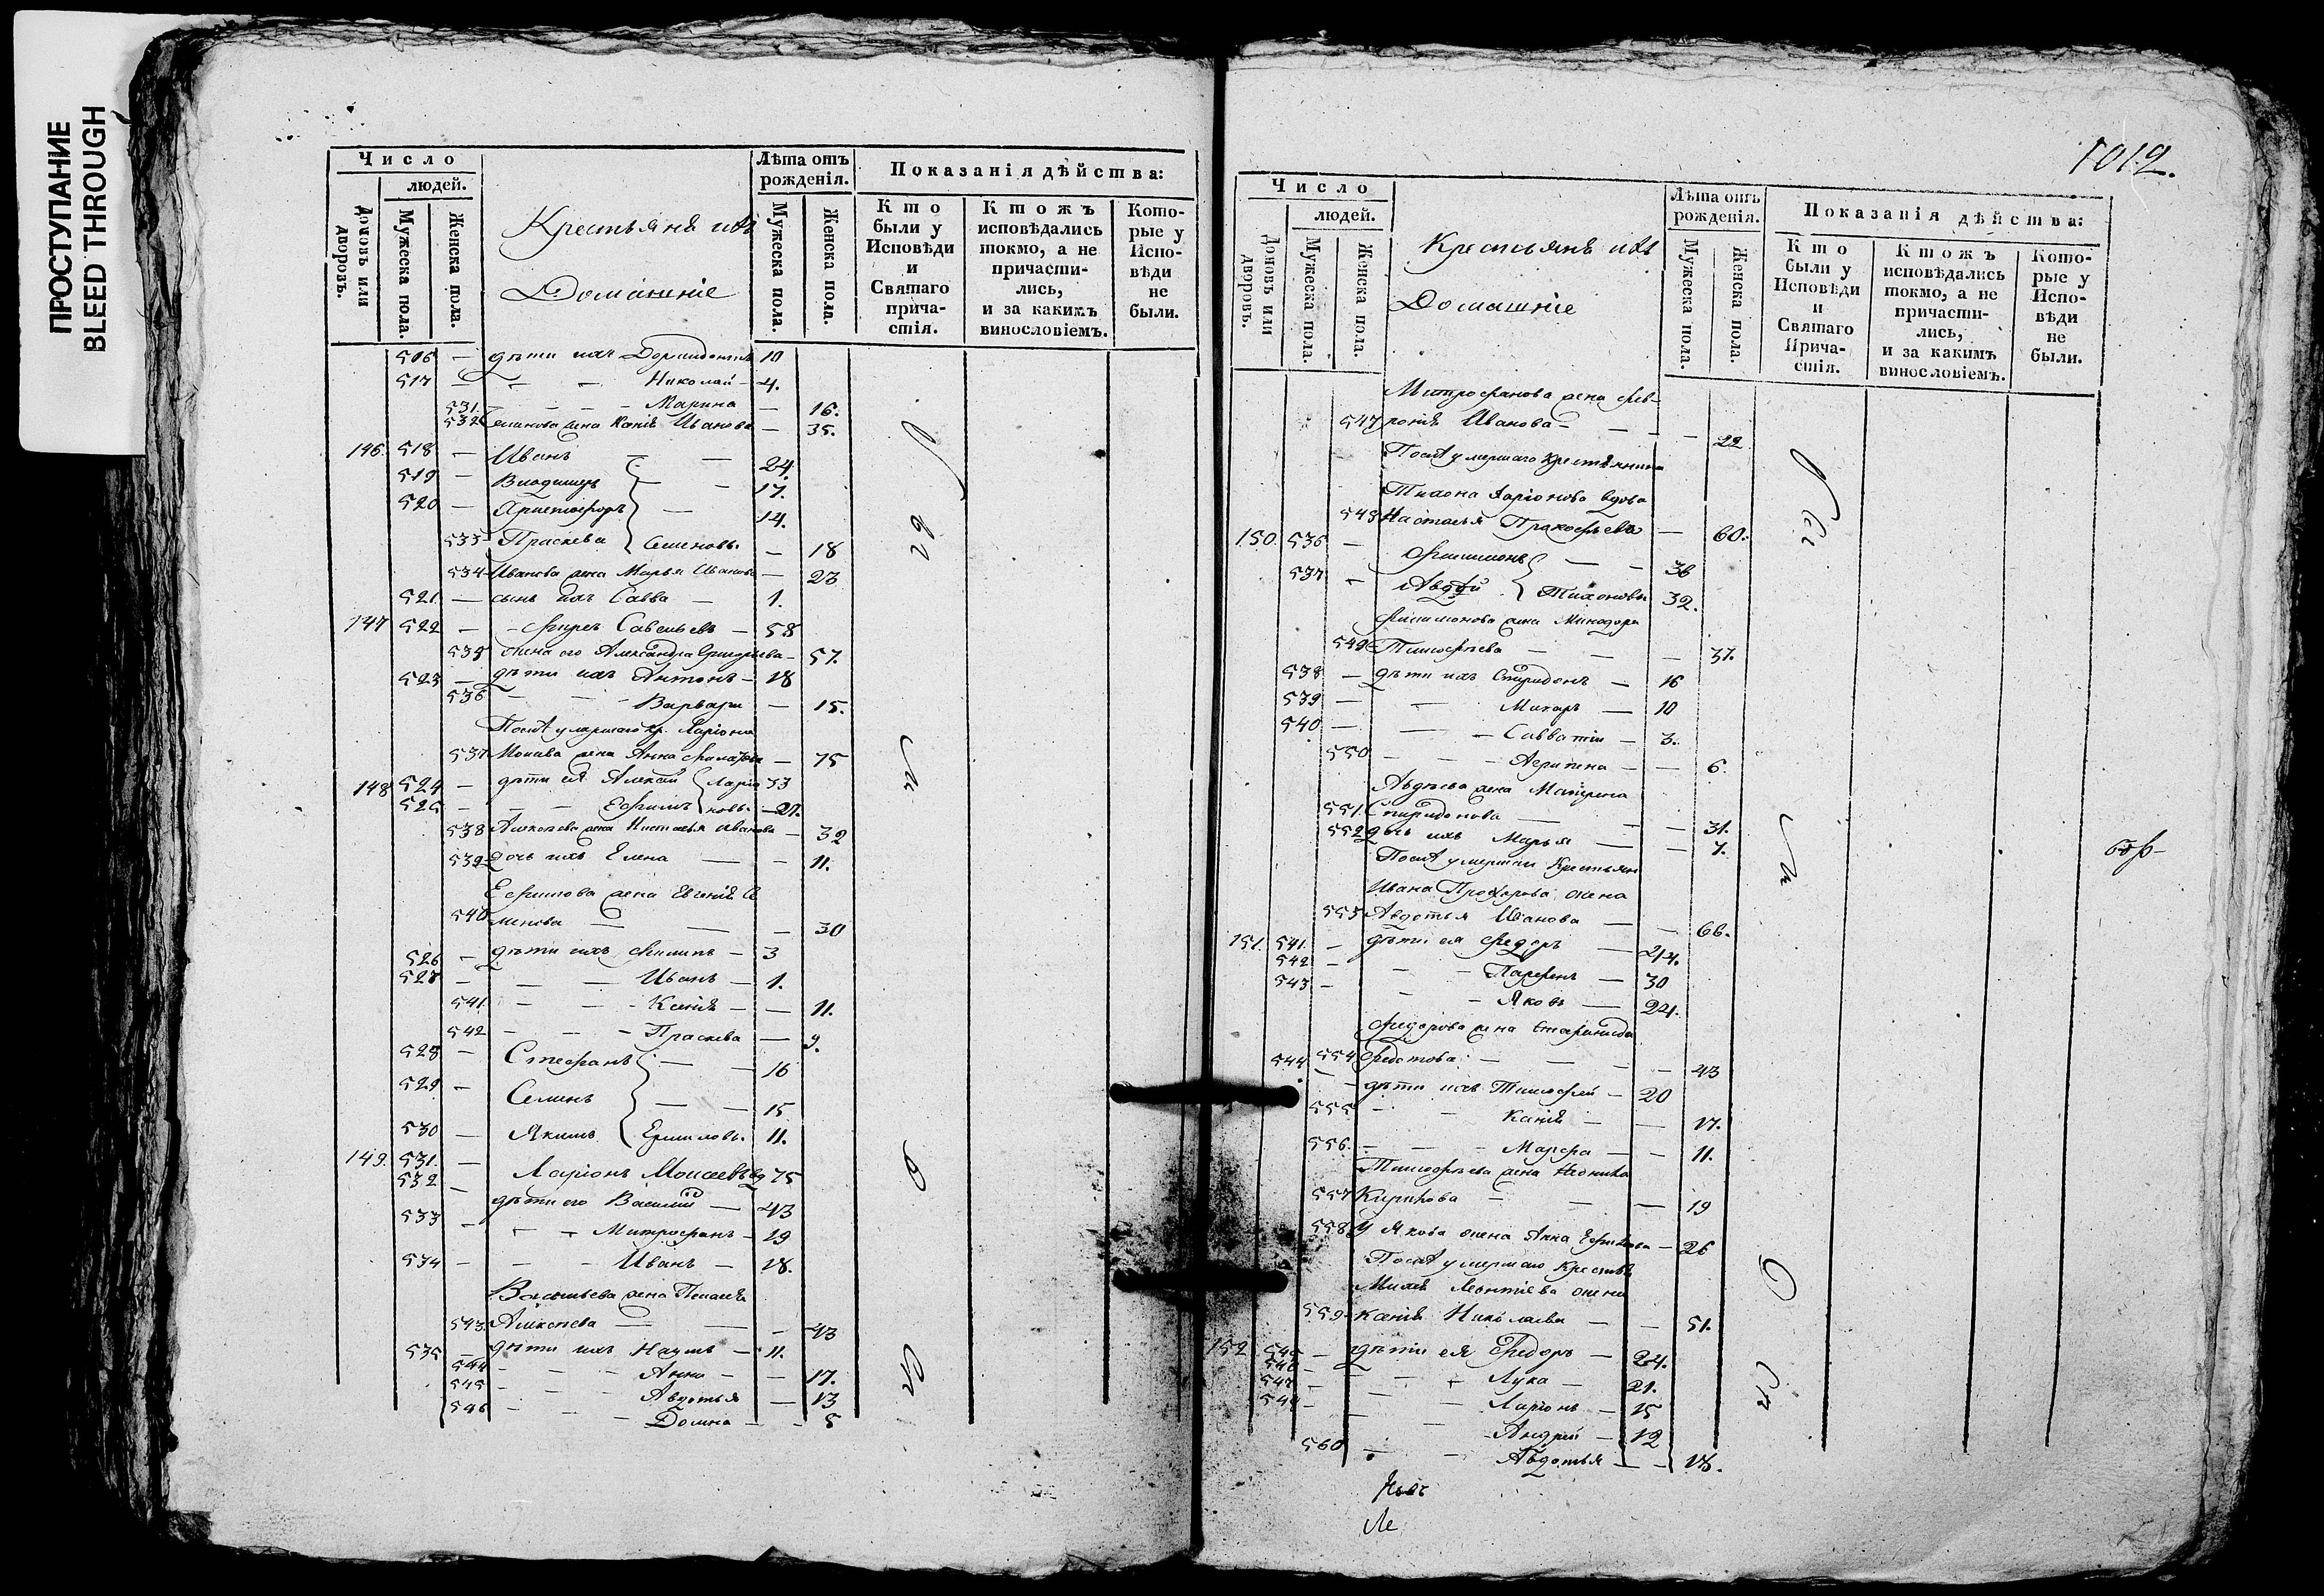 ПРОСТУПАНИЕ
BLEED THROUGH
Число
людей.
Домовъ или дворовъ.
Мужеска пола.
Женска пола.
Крестьяня ихъ
Домашніе
Лѣта отъ рожденія.
Мужеска пола.
Женска пола.
Показанія дѣйства:
Кто были у Исповѣди и Святаго причастія.
Ктожъ исповѣдались токмо, а не причастились, и за какимъ винословіемъ.
Которые у Исповѣди не были.
516 — дѣти ихъ 10
517 — — — Николай — 4.
531. — — — Марина — 16.
532 жена Ксенія Иванова — 35.
146. 518 — Иванъ — — 24.
519 — Владимиръ — — 17.
520 — Христофоръ — 14.
533 Праскева Семеновы — 18
534 Иванова жена Марья Иванова — 23
521. — сынъ ихъ Савва — 1.
147 522 — Савельевъ — 58
535 жена его Александра Григорьева — 57.
523 — дѣти ихъ Антонъ — 18
536 — — Варвара — 15.
Послѣ умершаго кр. Ларіона
537 жена Анна — 75
148 524 — дѣти ея Алексѣй Ларіо 33
525 — — Ефимъ новы — 27.
538 Алексѣева жена Настасья Иванова — 32
539 дочь ихъ Елена — — 11.
Ефимова жена Евгенія Се
540 менова — — — 30
526 — дѣти ихъ Филипъ — 3
527 — — — Иванъ — 1.
541. — — — Ксенія — — 11.
542 — — — Праскева — 9.
528 — Стефанъ — — 16
529 — Семенъ — — 15
530 — Якимъ Ермиловы 11.
149. 531. — Ларіонъ Моисеевъ вд 75
532 — дѣти его Василій — 43
533 — — — Митрофанъ — 29
534 — — — Иванъ — 18.
Васильева жена Пелагея
543. Алексѣева — — — 43
535 — дѣти ихъ Наумъ — 11.
544 — — Анна — — 17.
545 — — Авдотья — 13
546 — — Домна — — 5
1012.
Число
людей.
Домовъ или дворовъ.
Мужеска пола.
Женска пола.
Крестьянѣ ихъ
Домашніе
Лѣта отъ рожденія.
Мужеска пола.
Женска пола.
Показанія дѣйства:
Кто были у Исповѣди и Святаго Причастія.
Ктожъ исповѣдались токмо, а не причастились, и за какимъ винословіемъ.
Которые у Исповѣди не были.
Митрофанова жена Фев-
547 ронія Иванова — — — 22
Послѣ умершаго крестьянина
Тихона Ларіонова вдова
548 Настасья Прокофьева — 60.
150. 536 — Филимонъ — — 36
537 — Авдѣй Тихоновы 32.
Филимонова жена Минодора
549 Тимофѣева — — — 37.
538 — дѣти ихъ Спиридонъ — 16
539 — — Макаръ — 10
540 — — — Савватiй — 3.
550 — — — Агрипена — — 6.
Авдѣева жена Матрена
551. Спиридонова — — — 31.
552 дочь ихъ Марья — — 7.
Послѣ умершаго Крестьян
Ивана Прохорова жена
553 Авдотья Иванова — — 66.
151. 541. — дѣти ея Федоръ — 44.
542 — — — Парфенъ — 30
543 — — — Яковъ — 24.
Федорова жена Степанида
554 Федотова — — — 43
544 — дѣти ихъ Тимофей — 20
555 — — Ксенія — — 17.
556. — — — Марфа — — 11.
Тимофѣева жена
557 — — — 19
558 У Якова жена Анна — 26
Послѣ умершаго Крестьян
Михея Леонтіева жена
559 Ксенія Николаева — — 51.
152 545 — дѣти ея Федоръ — 24.
546 — — — Лука — 21.
547 — — — Ларіонъ — 15
548 — — — Андрей — 12
560 — — Авдотья — — 18.